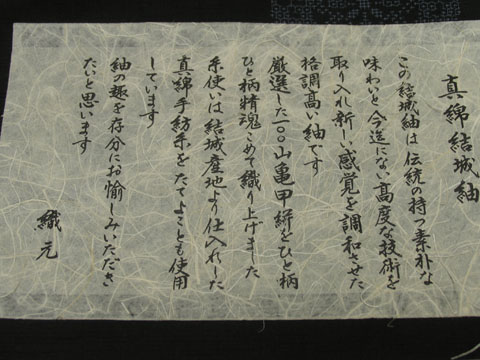 真綿結城紬
この結城紬は伝統の持つ素朴な
味わいと今迄にない高度な技術を
取り入れ新しい感覚を調和させた
格調高い紬です
厳選した一〇〇山亀甲絣をひと柄
ひと柄精魂こめて織り上げました
糸使いは結城産地より仕入れした
真綿手紡糸をたてよことも使用
しています
紬の趣を存分にお愉しみいただき
たいと思います
織元